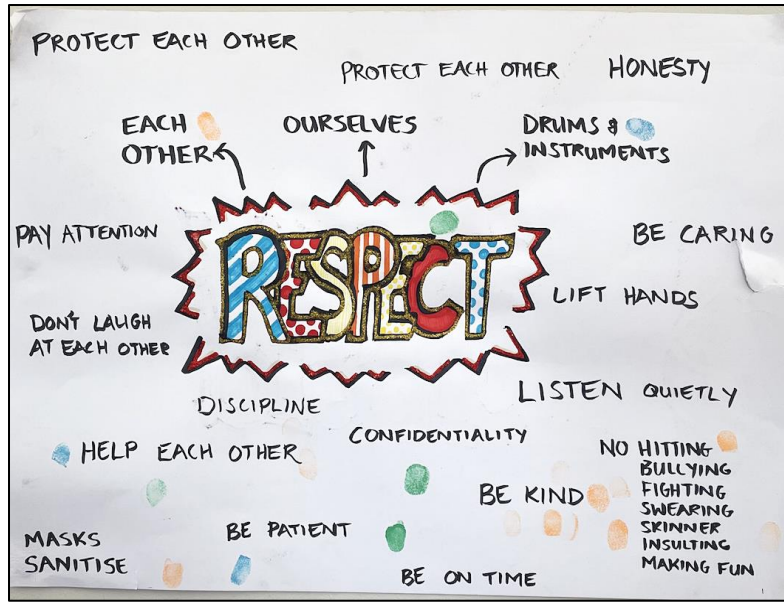 PROTECT EACH OTHER
PROTECT EACH OTHER
HONESTY
EACH
OTHER
OURSELVES
DRUMS &
INSTRUMENTS
PAY ATTENTION
RESPECT
BE CARING
LIFT HANDS
DON'T LAUGH
AT EACH OTHER
LISTEN QUIETLY
DISCIPLINE
CONFIDENTIALITY
HELP EACH OTHER
NO HITTING
BULLYING
FIGHTING
SWEARING
SKINNER
INSULTING
MAKING FUN
BE KIND
BE PATIENT
MASKS
SANITISE
BE ON TIME